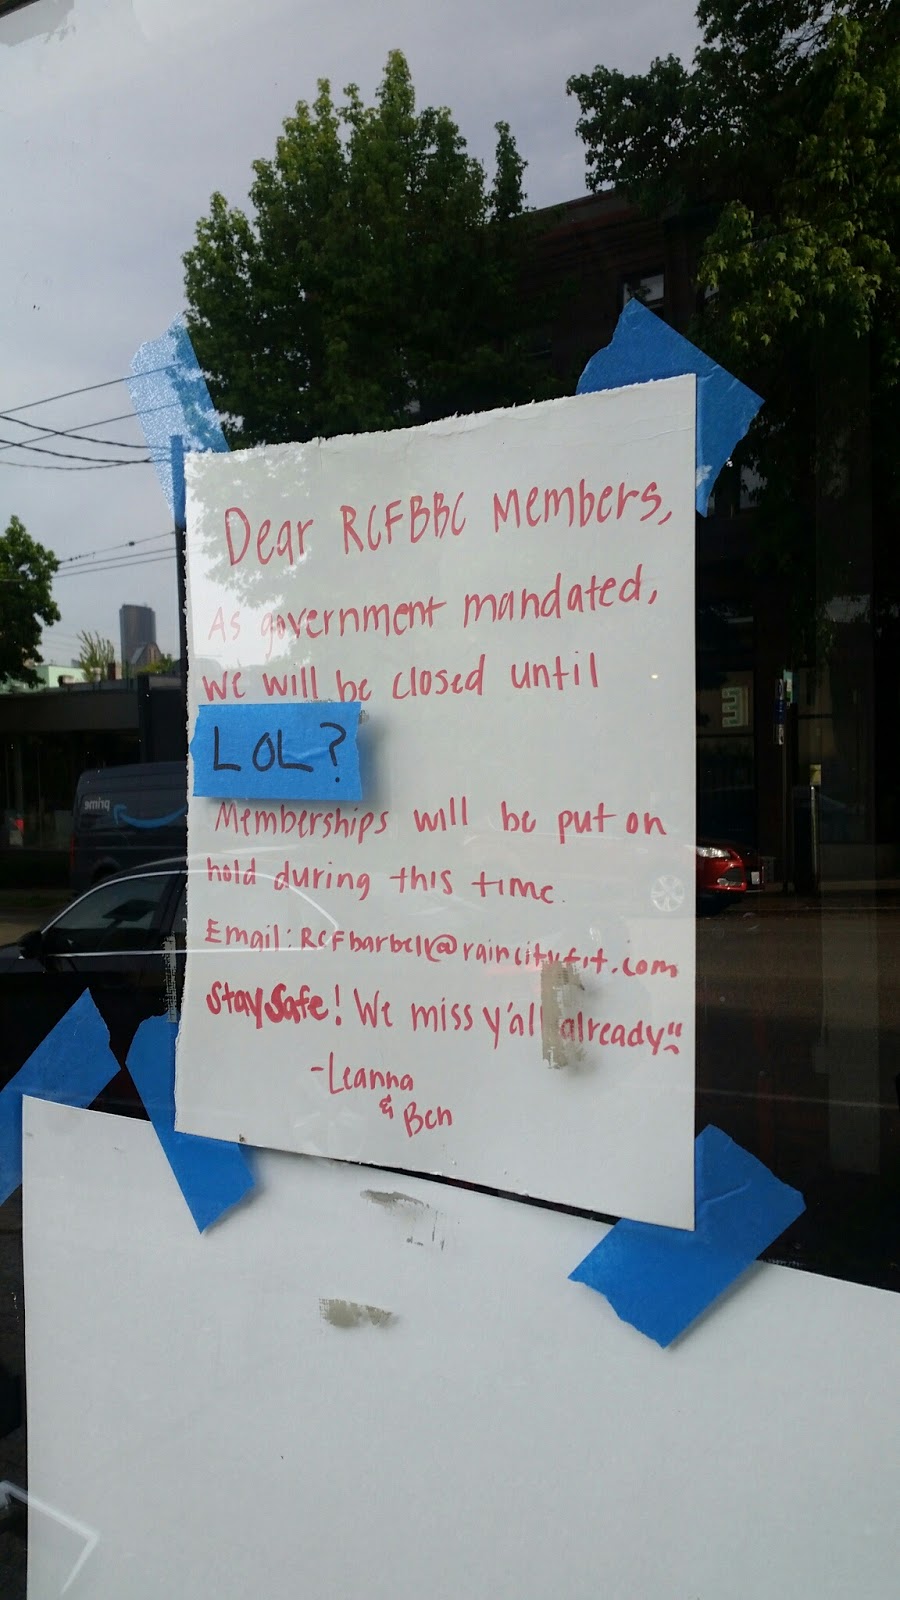 Dear RCFBBC Members,
As government mandated,
we will be closed until
LOL?
Memberships will be put on
hold during this time.
Email: RCFbarbell@raincityfit.com
Stay Safe! We miss y'all already
-Leanna
&
Ben
prime